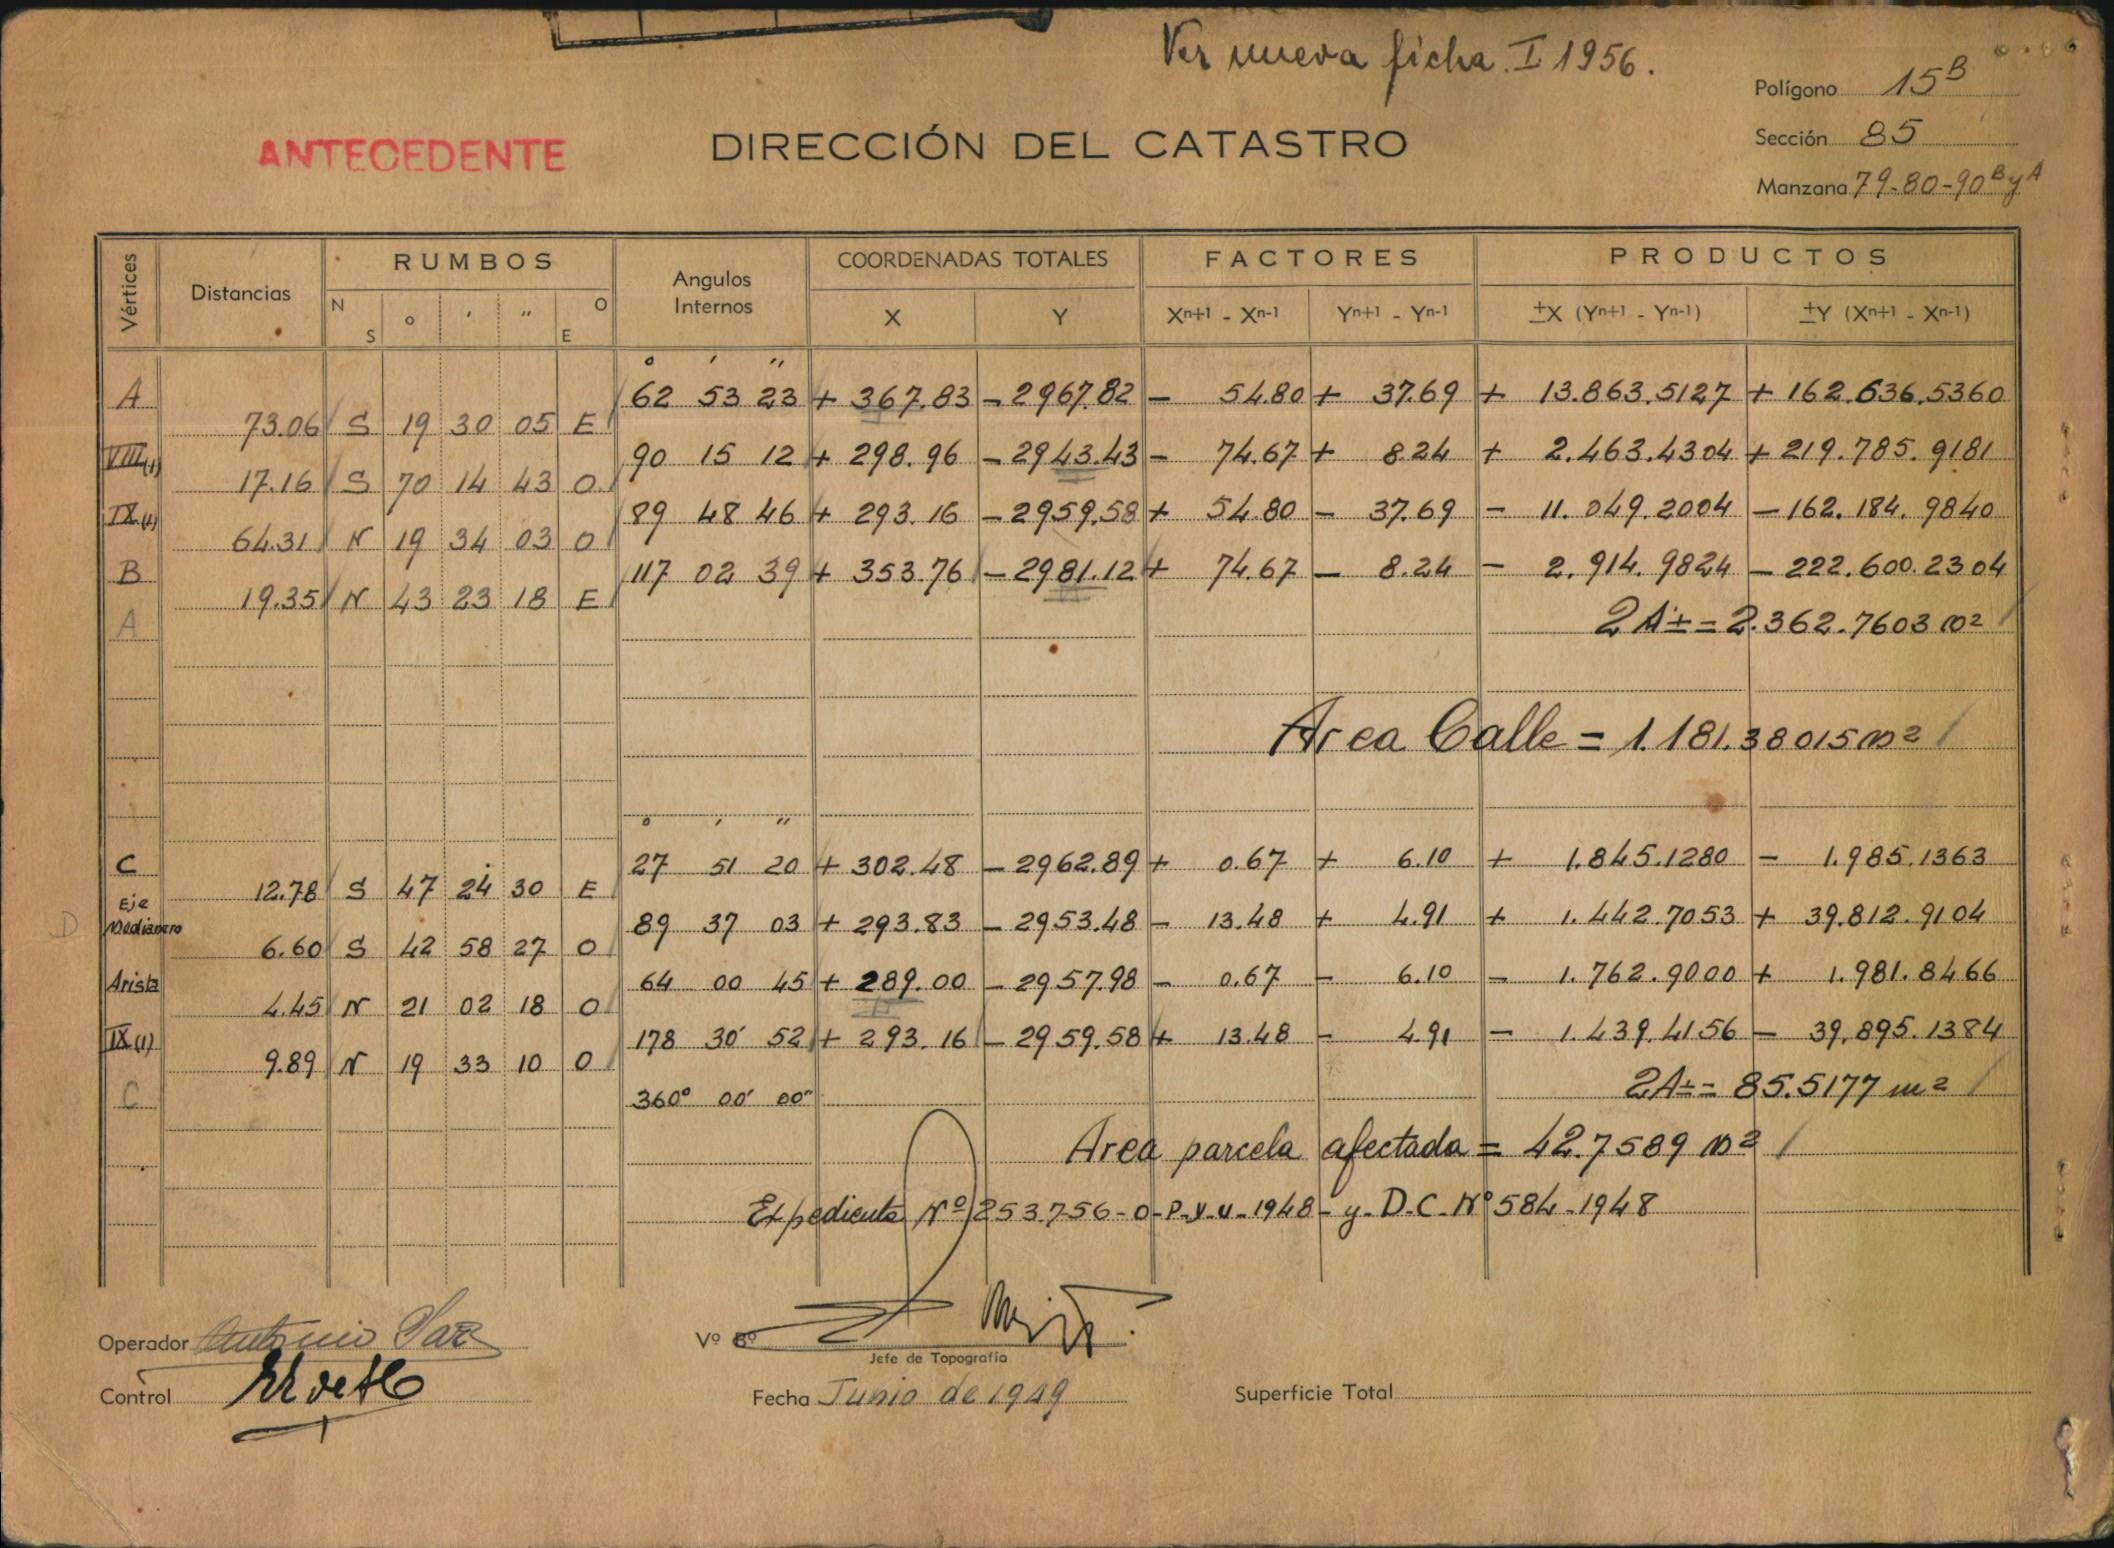 Ver nueva ficha I 1956.
Polígono 15B
ANTECEDENTE
DIRECCIÓN DEL CATASTRO
Sección 85
Manzana 79-80-90 B y A
Vértices Distancias RUMBOS Angulos Internos COORDENADAS TOTALES FACTORES PRODUCTOS
N S ° ' " O E X Y Xn+1 - Xn-1 Yn+1 - Yn-1 ±X (Yn+1 - Yn-1) ±Y (Xn+1 - Xn-1)
° ' "
A 62 53 23 + 367.83 - 2967.82 - 54.80 + 37.69 + 13.863.5127 + 162.636.5360
73.06 S 19 30 05 E
VIII(1) 90 15 12 + 298.96 - 2943.43 - 74.67 + 8.24 + 2.463.4304 + 219.785.9181
17.16 S 70 14 43 O
IX(1) 89 48 46 + 293.16 - 2959.58 + 54.80 - 37.69 - 11.049.2004 - 162.184.9840
64.31 N 19 34 03 O
B 117 02 39 + 353.76 - 2981.12 + 74.67 - 8.24 - 2.914.9824 - 222.600.2304
19.35 N 43 23 18 E
A 2A± = 2.362.7603 m2
Area Calle = 1.181.38015 m2
° ' "
C 27 51 20 + 302.48 - 2962.89 + 0.67 + 6.10 + 1.845.1280 - 1.985.1363
12.78 S 47 24 30 E
D Eje Medianero 89 37 03 + 293.83 - 2953.48 - 13.48 + 4.91 + 1.442.7053 + 39.812.9104
6.60 S 42 58 27 O
Arista 64 00 45 + 289.00 - 2957.98 - 0.67 - 6.10 - 1.762.9000 + 1.981.8466
4.45 N 21 02 18 O
IX(1) 178 30' 52 + 293.16 - 2959.58 + 13.48 - 4.91 - 1.439.4156 - 39.895.1384
9.89 N 19 33 10 O
C 360° 00' 00" 2A± = 85.5177 m2
Area parcela afectada = 42.7589 m2
Expediente Nº 253.756-O-P-y-U-1948- y-D.C.Nº 584-1948
Operador Antonio Paz
Vº Bº
Jefe de Topografía
Control
Fecha Junio de 1949
Superficie Total